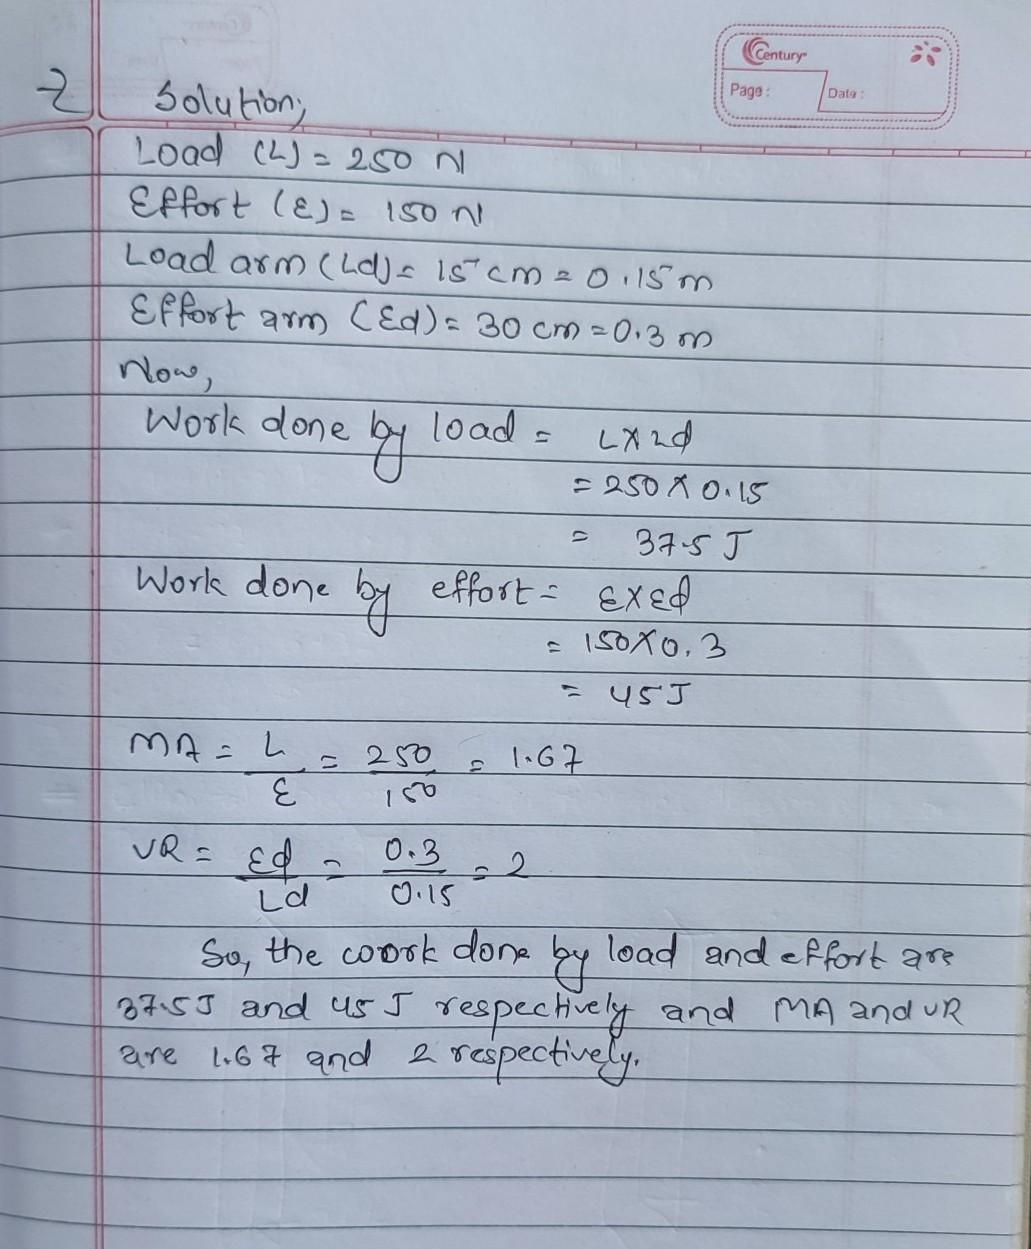 Century
Page :
Date :
2 Solution;
Load (L) = 250 N
Effort (E) = 150 N
Load arm (Ld) = 15 cm = 0.15 m
Effort arm (Ed) = 30 cm = 0.3 m
Now,
Work done by load = L×Ld
= 250 × 0.15
= 37.5 J
Work done by effort = E×Ed
= 150×0.3
= 45 J
MA = L/E = 250/150 = 1.67
VR = Ed/Ld = 0.3/0.15 = 2
So, the work done by load and effort are
37.5J and 45 J respectively and MA and VR
are 1.67 and 2 respectively.